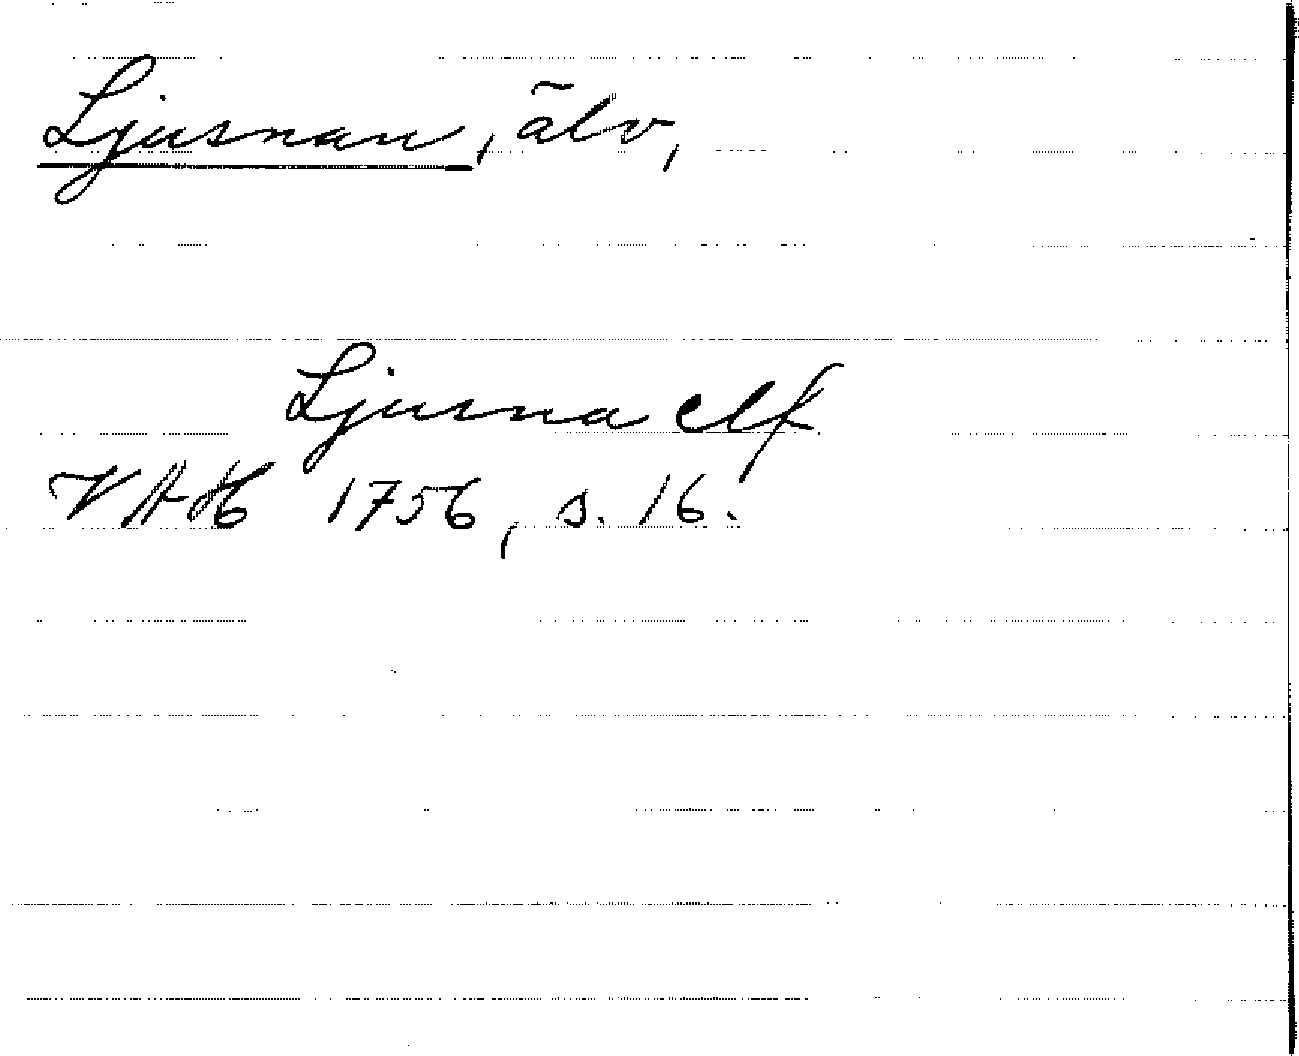 Ljusnan, älv,
Ljusna elf
VAH 1756, s. 16.